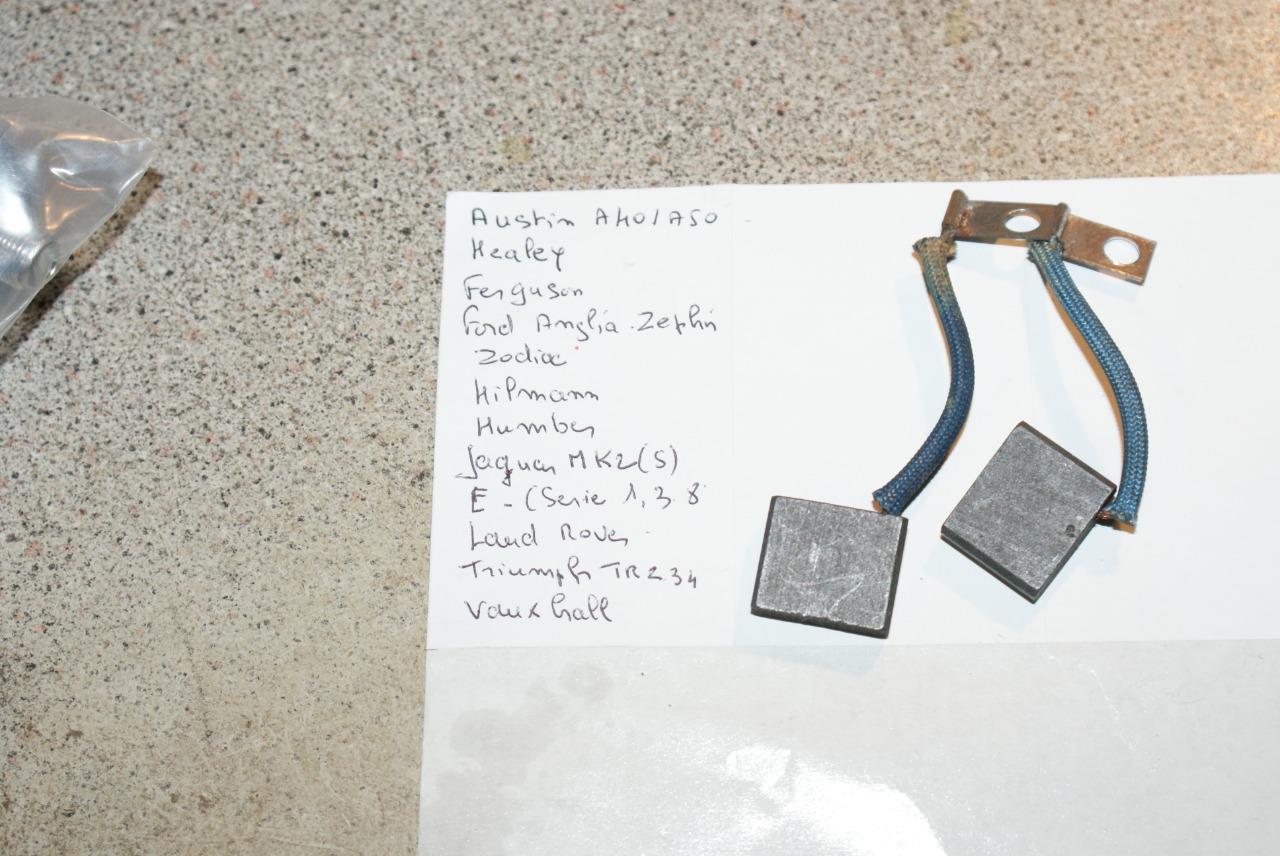 Austin A40/A50
Healey
Ferguson
Ford Anglia. Zephir
Zodiac
Hilmann
Humber
Jaguar MK2(S)
E - (Serie 1, 3.8
Land Rover
Triumph TR2.34
Vauxhall